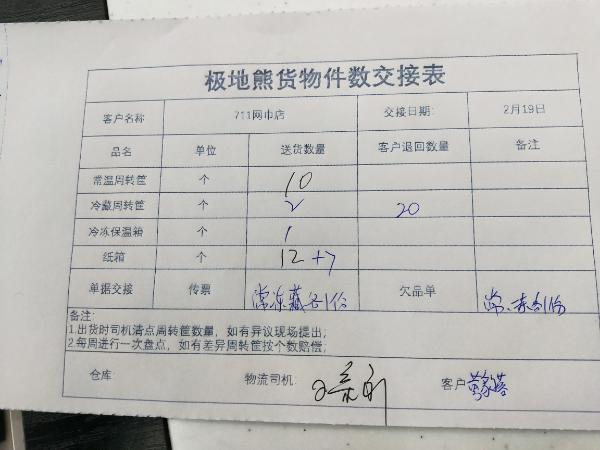 极地熊货物件数交接表
客户名称 711网巾店 交接日期: 2月19日
品名 单位 送货数量 客户退回数量 备注
常温周转筐 个 10
冷藏周转筐 个 2 20
冷冻保温箱 个 1
纸箱 个 12 +7
单据交接 传票 常冻藏各1份 欠品单 常、冻各1份
备注:
1.出货时司机清点周转筐数量，如有异议现场提出;
2.每周进行一次盘点，如有差异周转筐按个数赔偿;
仓库: 物流司机: 客户